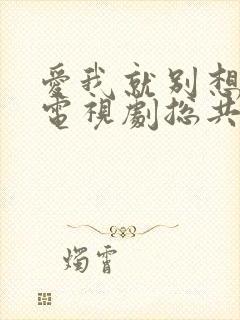 愛我就別想
電視劇總共
燭霄